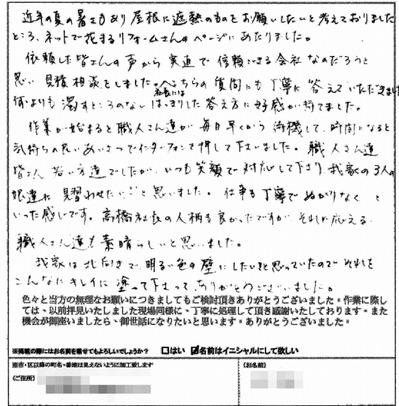 近年の夏の暑さもあり屋根に遮熱のものをお願いしたいと考えておりました
ところ、ネットで花まるリフォームさんのページにあたりました。
依頼した皆さんの声から実直で信頼できる会社なのだろうと
思い見積相談をしました。こちらの質問にも丁寧に答えていただきました
社長には
何よりも濁すところのないはっきりした答え方に好感が持てました。
作業が始まると職人さん達が毎日早くから待機して、時間になると
気持ちの良いあいさつでインターフォンを押して下さいました。職人さん達
皆さん若い方達でしたが、いつも笑顔で対応して下さり我家の3人の
娘達に見習わせたいなと思いました。仕事も丁寧でぬかりなくと
いった感じです。高橋社長の人柄も良かったですがそれに応える
職人さん達も素晴らしいと思いました。
我家は北向きで明るい色の壁にしたいと思っていたのでそれを
こんなにキレイに塗って下さってありがとうございました。
色々と当方の無理なお願いにつきましてもご検討頂きありがとうございました。作業に際し
ては、以前拝見いたしました現場同様に、丁寧に処理して頂き感謝いたしております。また
機会が御座いましたら、御世話になりたいと思います。ありがとうございます。
※掲載の際にはお名前を載せてもよろしいでしょうか？ □はい ☑名前はイニシャルにして欲しい
※市・区以降の町名・番地は見えないように加工致します
(ご住所) (お名前)